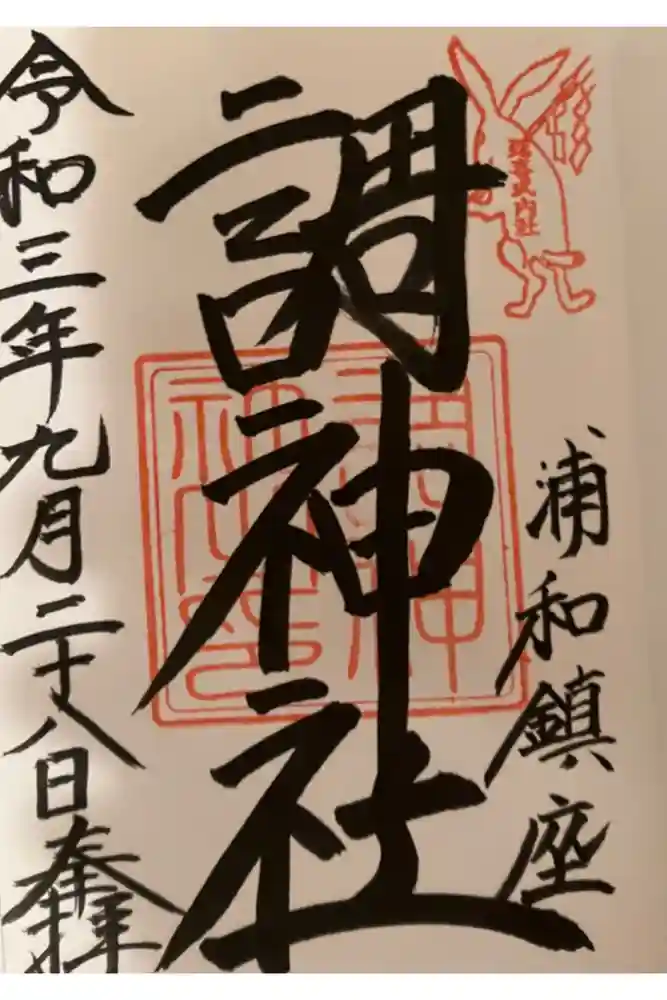 浦和鎮座
調神社
令和三年九月二十八日奉拝